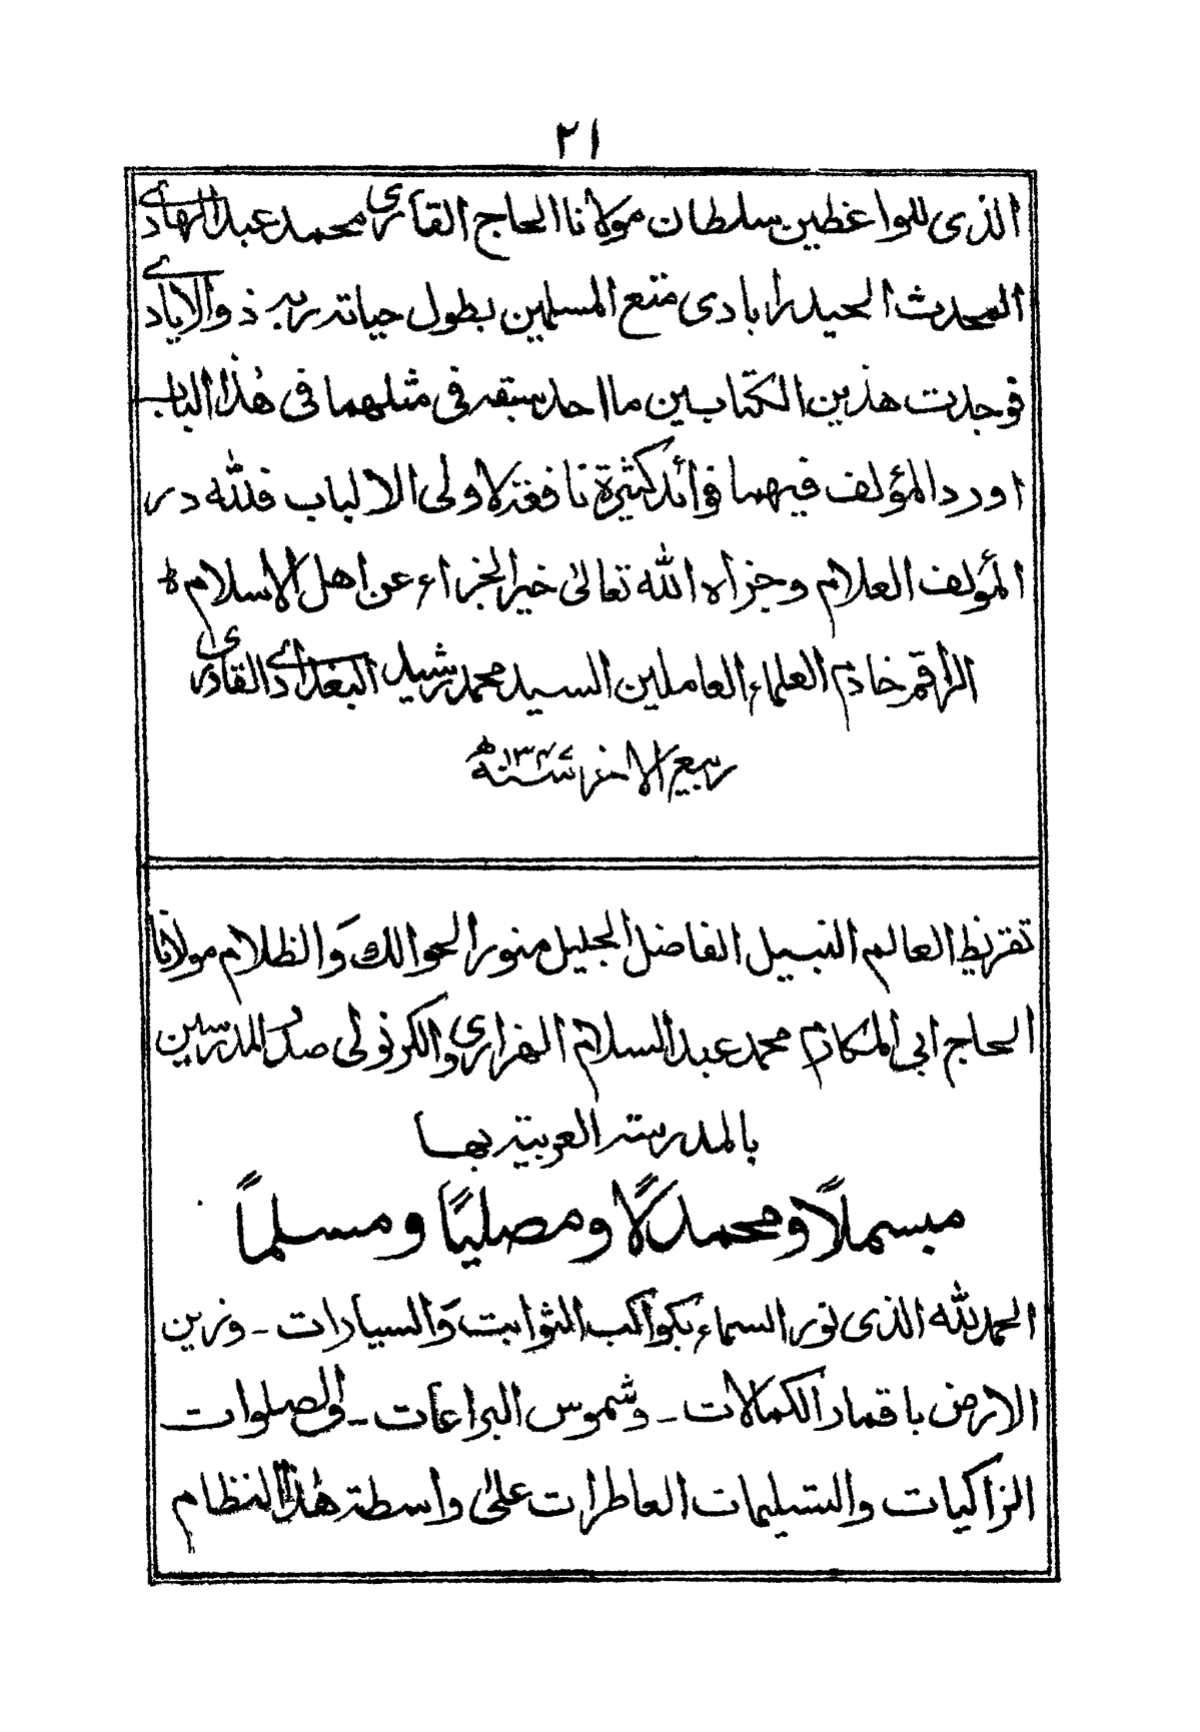 ٢١
الذى للواعظين سلطان مولانا الحاج القارى محمد عبد الهادى
المحدث الحيدرابادى متع المسلمين بطول حياته ربه ذوالايادى
فوجدت هذين الكتابين ما احد سبقه فى مثلهما فى هٰذا الباب
اورد المؤلف فيهما فوائد كثيرة نافعة لاولى الالباب فللّٰه در
المؤلف العلام وجزاه اللّٰه تعالىٰ خير الجزاء عن اهل الاسلام
الراقم خادم العلماء العاملين السيد محمد رشيد البغدادى القادرى
ربيع الاخر سنة ١٣٤٧ھ
تقريظ العالم النبيل الفاضل الجليل منور الحوالك وَالظلام مولانا
الحاج ابى المكارم محمد عبد السلام الهزاروى والكرنولى صدر المدرسين
بالمدرسة العربية بها
مبسملاً ومحمدلًا ومصليًا ومسلماً
الحمد للّٰه الذى نور السماء بكواكب الثوابت وَالسيارات - وزين
الارض باقمار الكمالات - وشموس البراعات - والصلوات
الزاكيات والتسليمات العاطرات علىٰ واسطة هٰذا النظام